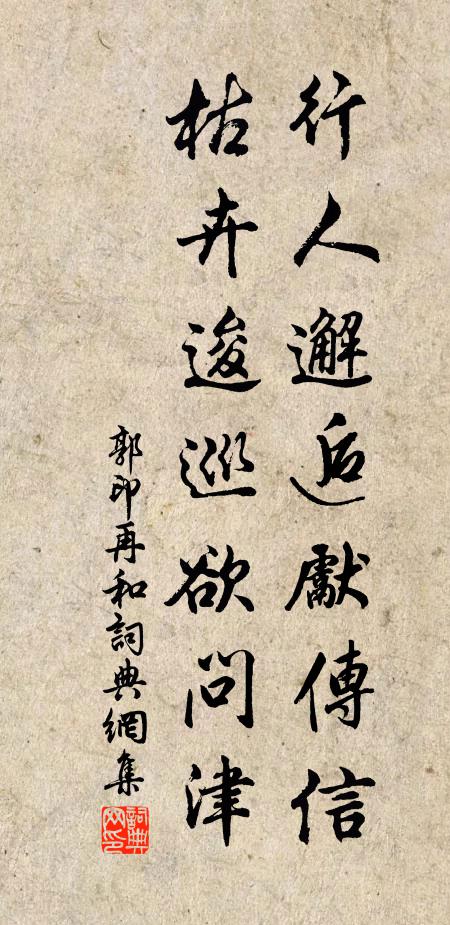 行人邂逅獻傳信
枯卉逡巡欲問津
郭印再和詞典網集
詞典網印